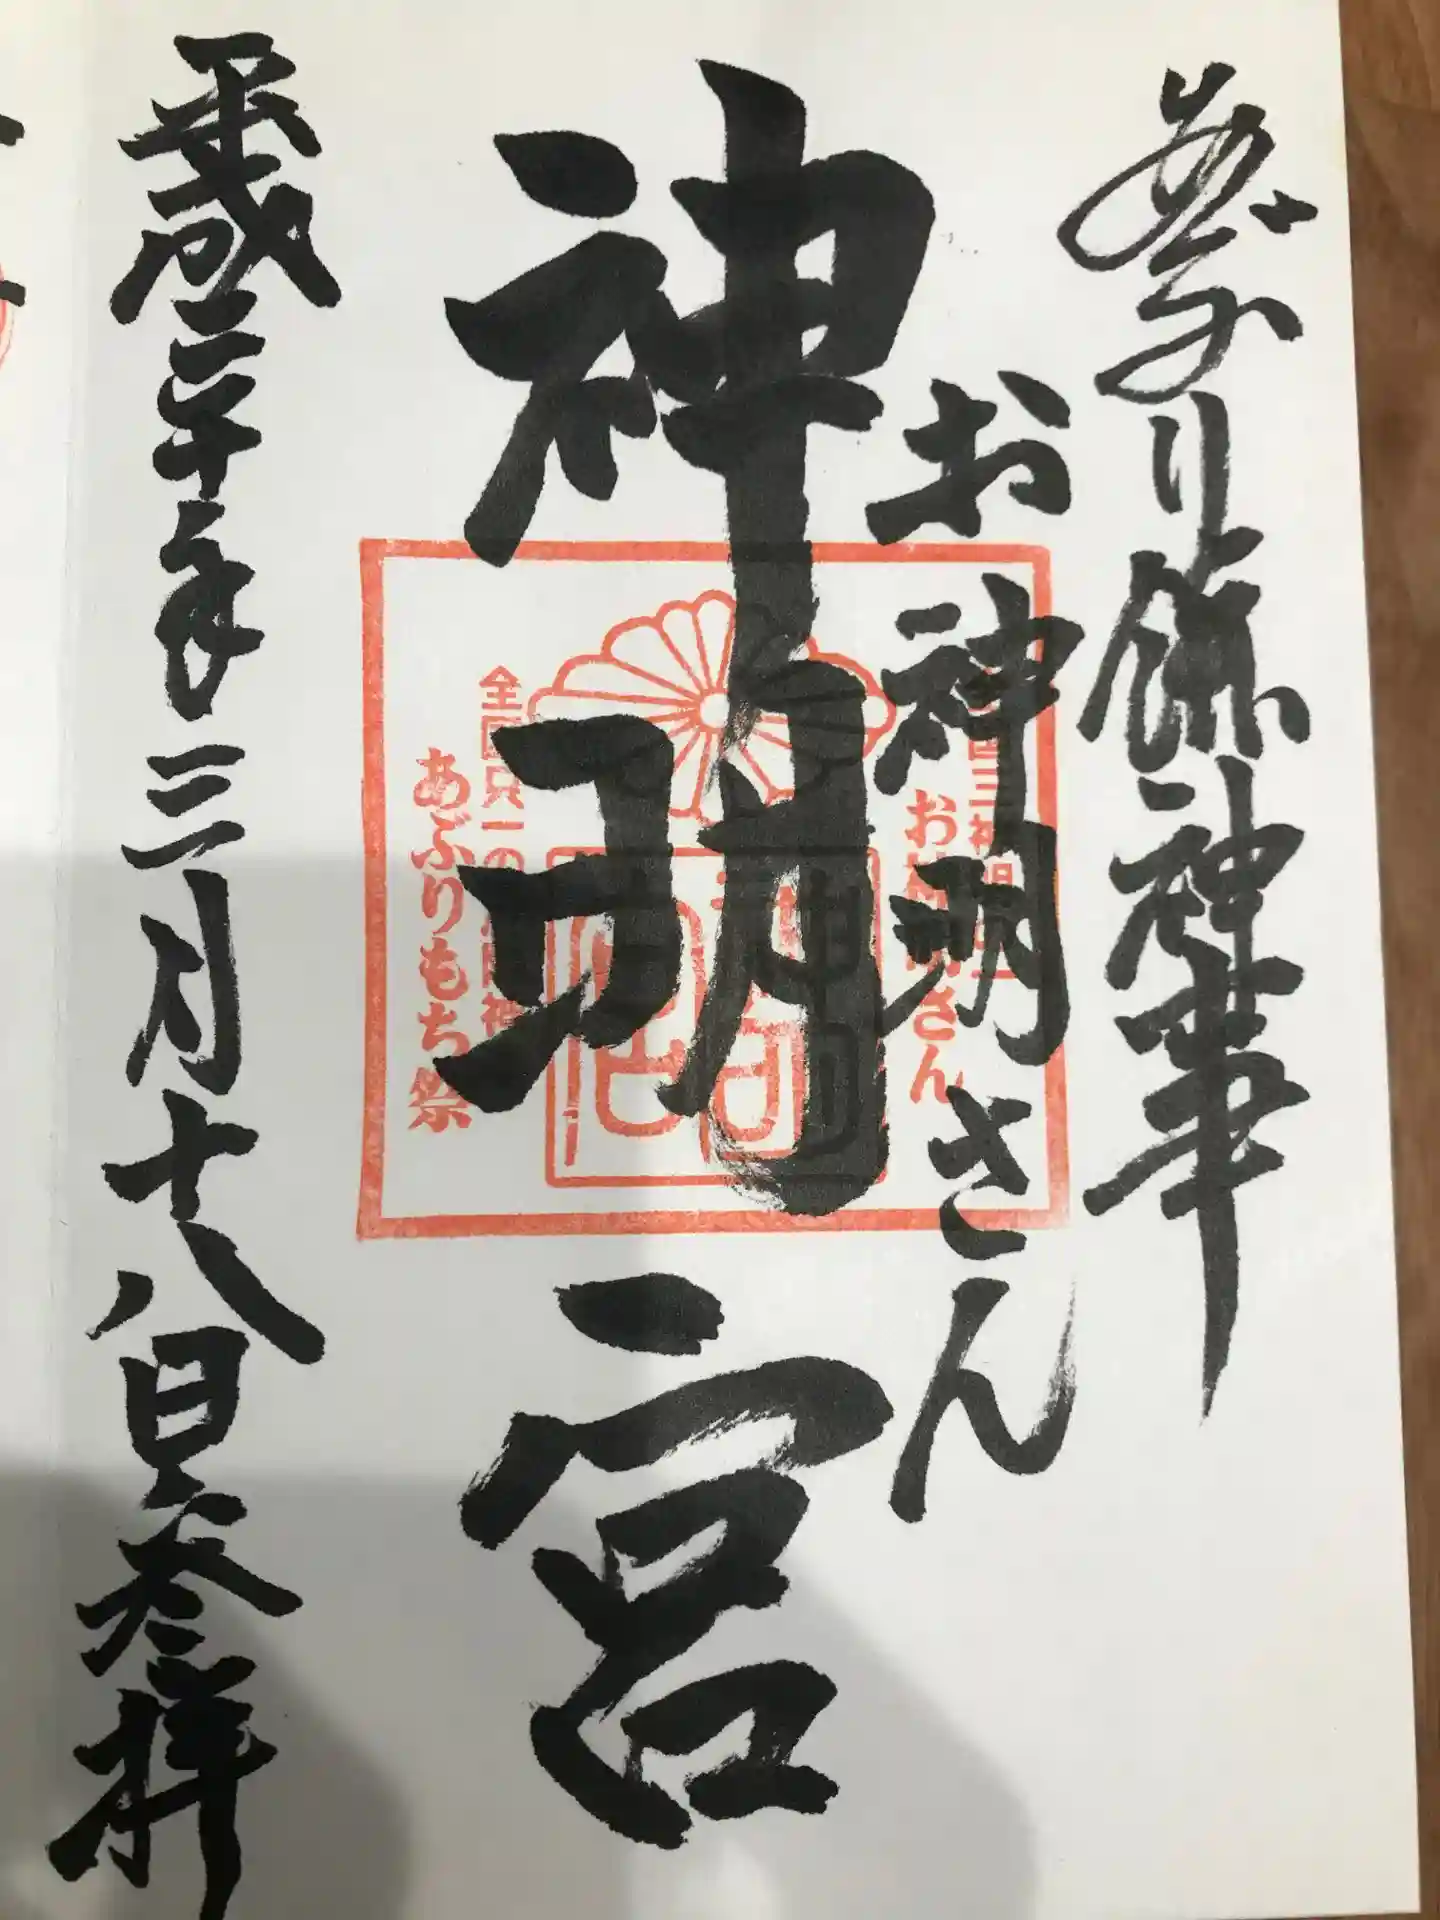 あぶり餅神事
お神明さん
神明宮
平成三十年三月十八日参拝
お神明さん
全国只一の
あぶりもち祭